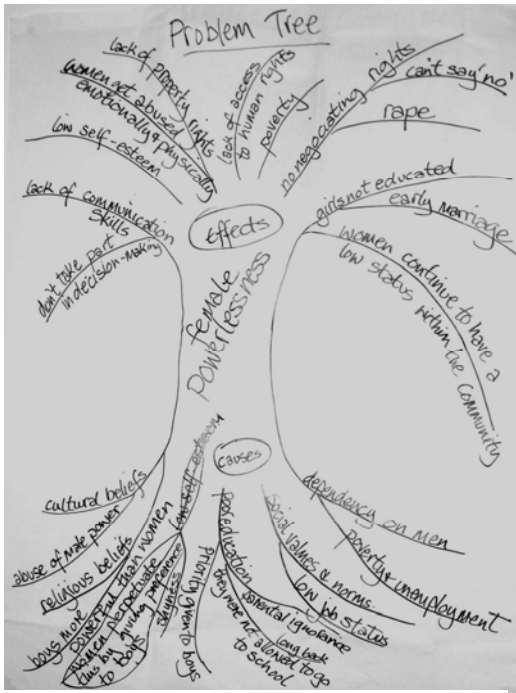 Problem Tree
lack of property rights
women get abused
emotionally & physically
low self-esteem
lack of communication
skills
don't take part
in decision-making
lack of access
to human rights
poverty
no negociating rights
can't say 'no'
rape
girls not educated
early marriage
women continue to have a
low status within the community
Effects
female
powerlessness
causes
cultural beliefs
abuse of male power
religious beliefs
boys more
powerful than women
women perpetuate
this by giving preference
to boys
low self-esteem
shyness
priority given to boys
poor education
parental ignorance
long back
they were not allowed to go
to school
social values & norms
low job status
dependency on men
poverty & unemployment